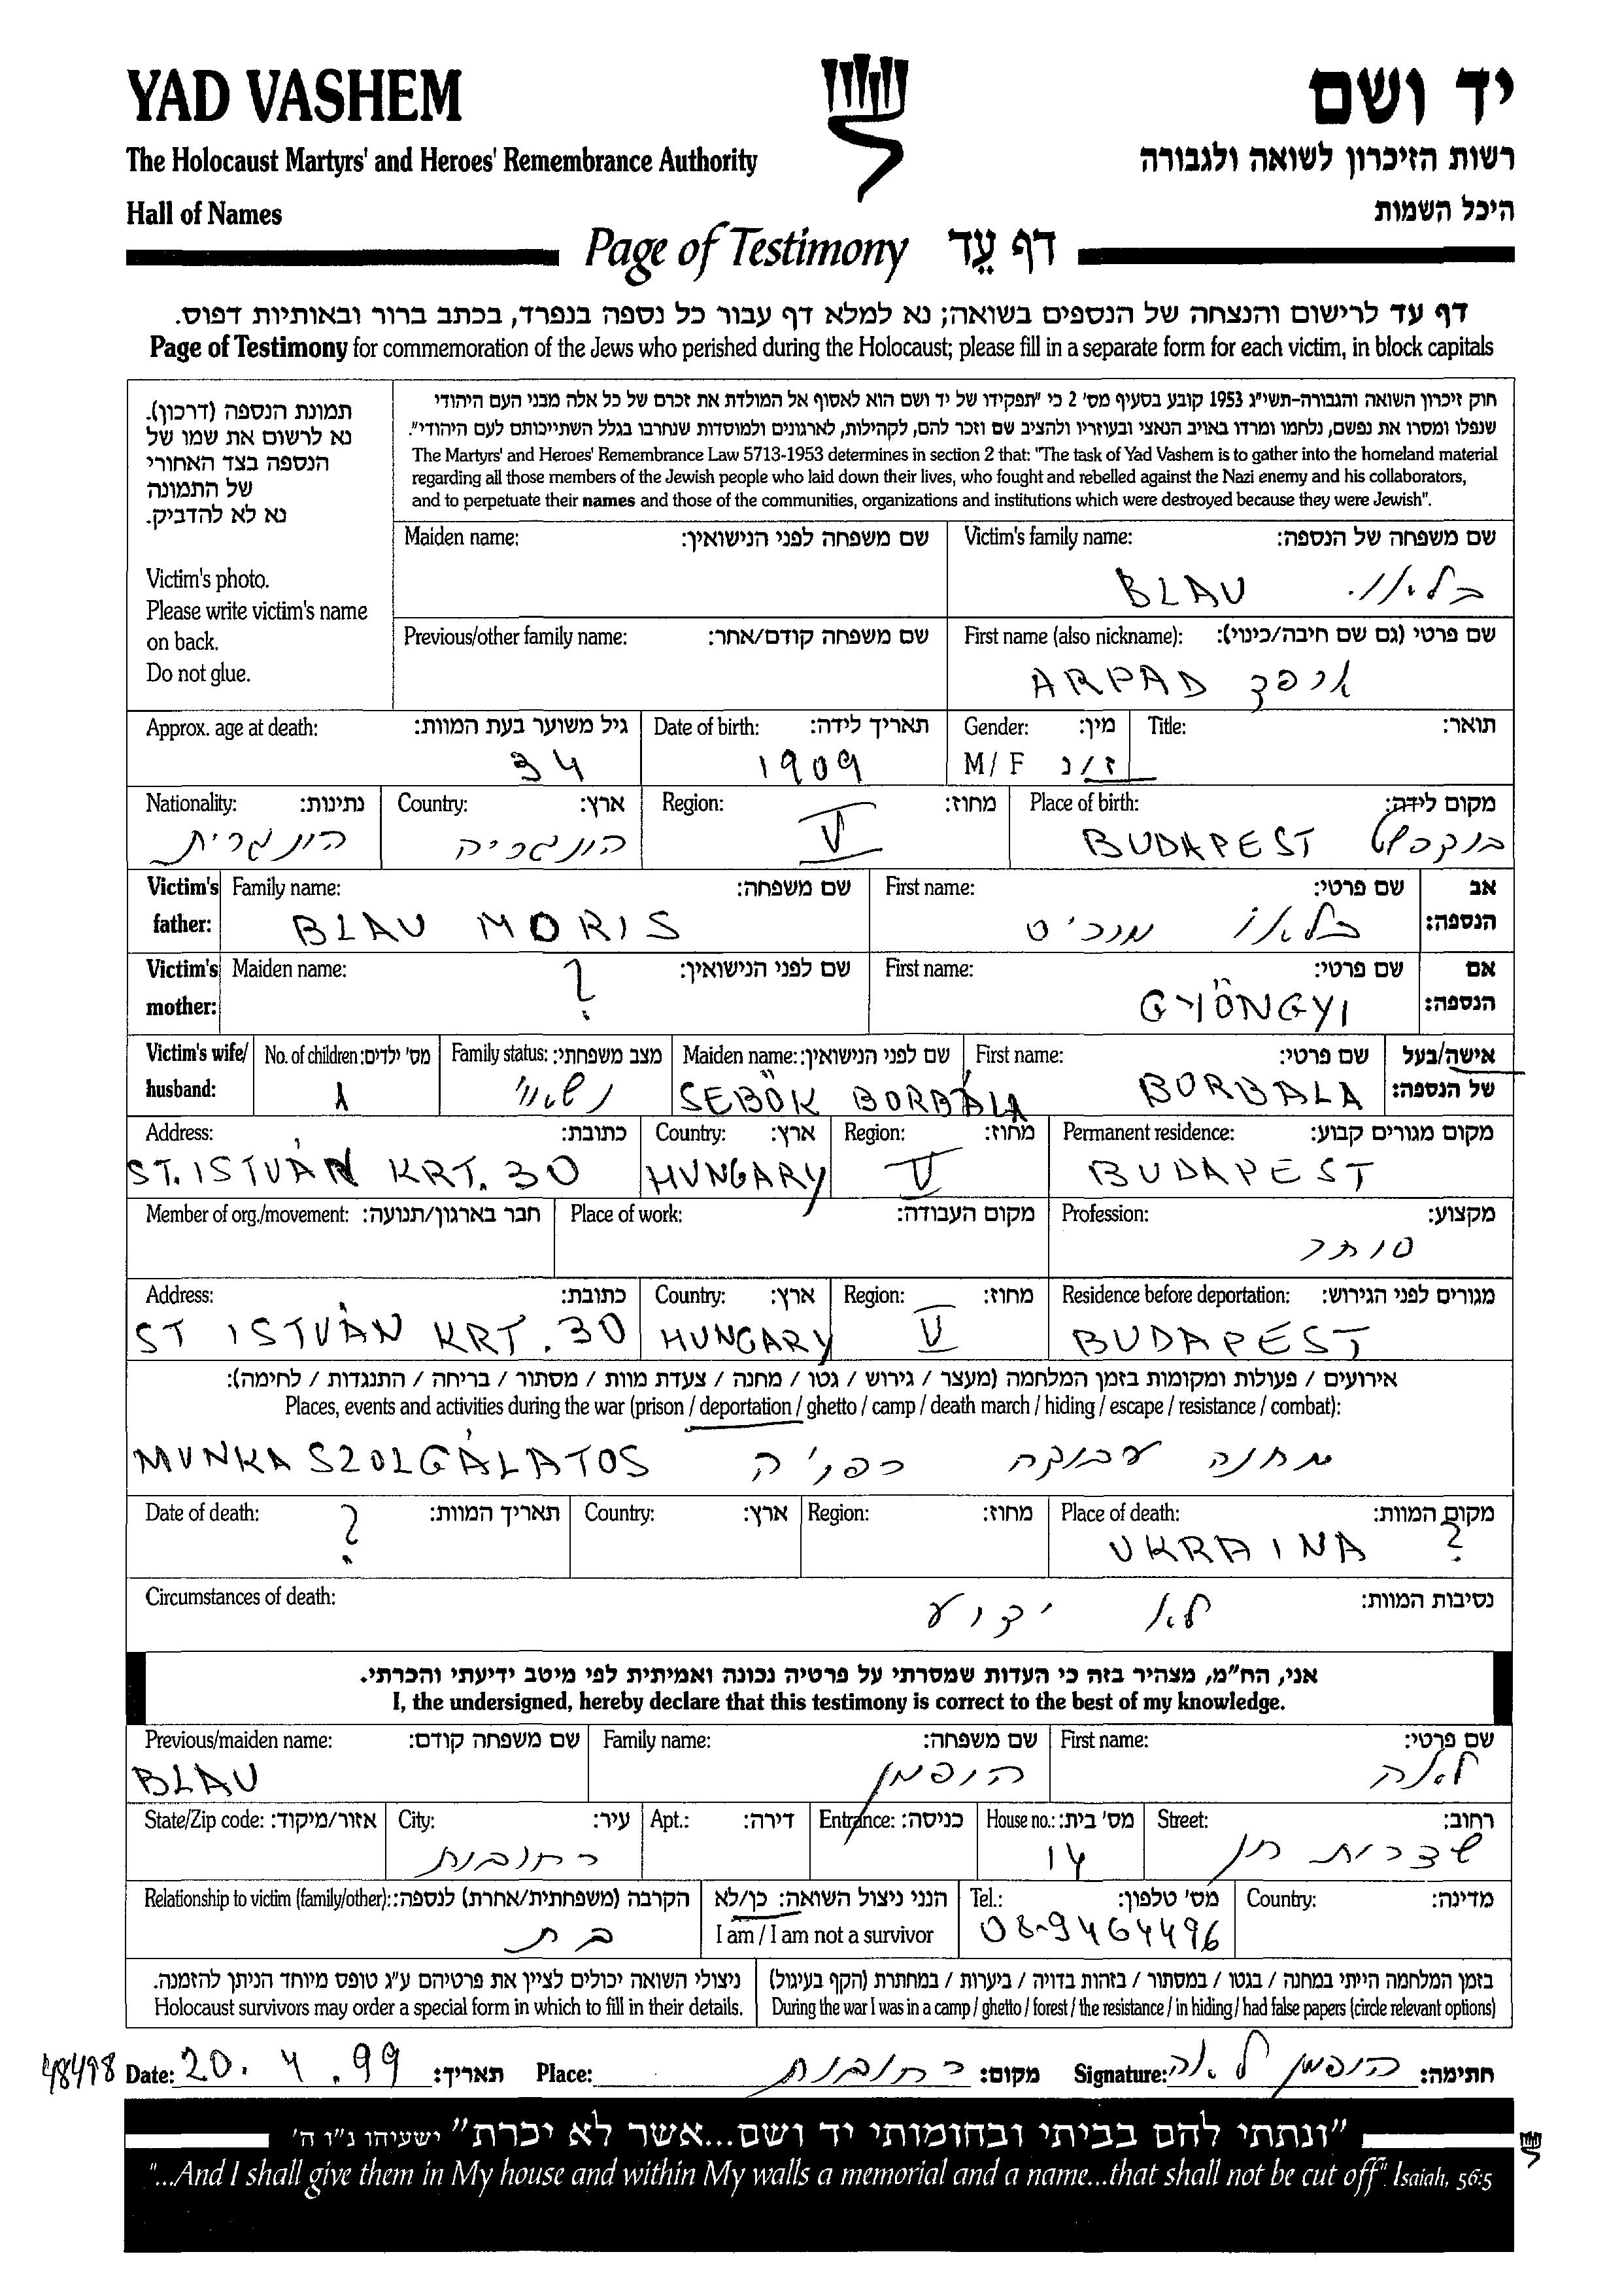 YAD VASHEM
יד ושם
The Holocaust Martyrs' and Heroes' Remembrance Authority
רשות הזיכרון לשואה ולגבורה
Hall of Names
היכל השמות
Page of Testimony דף עֵד
דף עד לרישום והנצחה של הנספים בשואה; נא למלא דף עבור כל נספה בנפרד, בכתב ברור ובאותיות דפוס.
Page of Testimony for commemoration of the Jews who perished during the Holocaust; please fill in a separate form for each victim, in block capitals
תמונת הנספה (דרכון).
נא לרשום את שמו של
הנספה בצד האחורי
של התמונה
נא לא להדביק.
Victim's photo.
Please write victim's name
on back.
Do not glue.
חוק זיכרון השואה והגבורה-תשי"ג 1953 קובע בסעיף מס' 2 כי "תפקידו של יד ושם הוא לאסוף אל המולדת את זכרם של כל אלה מבני העם היהודי
שנפלו ומסרו את נפשם, נלחמו ומרדו באויב הנאצי ובעוזריו ולהציב שם וזכר להם, לקהילות, לארגונים ולמוסדות שנחרבו בגלל השתייכותם לעם היהודי".
The Martyrs' and Heroes' Remembrance Law 5713-1953 determines in section 2 that: "The task of Yad Vashem is to gather into the homeland material
regarding all those members of the Jewish people who laid down their lives, who fought and rebelled against the Nazi enemy and his collaborators,
and to perpetuate their names and those of the communities, organizations and institutions which were destroyed because they were Jewish".
Maiden name: שם משפחה לפני הנישואין:
Victim's family name: שם משפחה של הנספה:
BLAU בלאו.
Previous/other family name: שם משפחה קודם/אחר:
First name (also nickname): שם פרטי (גם שם חיבה/כינוי):
ARPAD ארפד
Approx. age at death: גיל משוער בעת המוות:
34
Date of birth: תאריך לידה:
1909
Gender: מין:
M/F ז/נ
Title: תואר:
Nationality: נתינות:
הונגרית
Country: ארץ:
הונגריה
Region: מחוז:
V
Place of birth: מקום לידה:
BUDAPEST בודפשט
Victim's father: Family name: שם משפחה:
BLAU MORIS
First name: שם פרטי: אב הנספה:
בלאו מוריס
Victim's mother: Maiden name: שם לפני הנישואין:
?
First name: שם פרטי: אם הנספה:
GYÖNGYI
Victim's wife/ husband:
No. of children: מס' ילדים:
1
Family status: מצב משפחתי:
נשוי
Maiden name: שם לפני הנישואין:
SEBÖK BORBÁLA
First name: שם פרטי: אישה/בעל של הנספה:
BORBALA
Address: כתובת:
ST. ISTVÁN KRT. 30
Country: ארץ:
HUNGARY
Region: מחוז:
V
Permanent residence: מקום מגורים קבוע:
BUDAPEST
Member of org./movement: חבר בארגון/תנועה:
Place of work: מקום העבודה:
Profession: מקצוע:
סוחר
Address: כתובת:
ST ISTVÁN KRT. 30
Country: ארץ:
HUNGARY
Region: מחוז:
V
Residence before deportation: מגורים לפני הגירוש:
BUDAPEST
אירועים / פעולות ומקומות בזמן המלחמה (מעצר / גירוש / גטו / מחנה / צעדת מוות / מסתור / בריחה / התנגדות / לחימה):
Places, events and activities during the war (prison / deportation / ghetto / camp / death march / hiding / escape / resistance / combat):
MUNKASZOLGÁLATOS מחנה עבודה כפויה
Date of death: תאריך המוות:
?
Country: ארץ:
Region: מחוז:
Place of death: מקום המוות:
UKRAINA ?
Circumstances of death: נסיבות המוות:
לא ידוע
אני, הח"מ, מצהיר בזה כי העדות שמסרתי על פרטיה נכונה ואמיתית לפי מיטב ידיעתי והכרתי.
I, the undersigned, hereby declare that this testimony is correct to the best of my knowledge.
Previous/maiden name: שם משפחה קודם:
BLAU
Family name: שם משפחה:
הופמן
First name: שם פרטי:
לאה
State/Zip code: אזור/מיקוד:
City: עיר:
רחובות
Apt.: דירה:
Entrance: כניסה:
House no.: מס' בית:
14
Street: רחוב:
שדרות חן
Relationship to victim (family/other): הקרבה (משפחתית/אחרת) לנספה:
בת
הנני ניצול השואה: כן/לא
I am / I am not a survivor
Tel.: מס' טלפון:
08-9464496
Country: מדינה:
ניצולי השואה יכולים לציין את פרטיהם ע"ג טופס מיוחד הניתן להזמנה.
Holocaust survivors may order a special form in which to fill in their details.
בזמן המלחמה הייתי במחנה / בגטו / במסתור / בזהות בדויה / ביערות / במחתרת (הקף בעיגול)
During the war I was in a camp / ghetto / forest / the resistance / in hiding / had false papers (circle relevant options)
Date: 20. 4 .99 תאריך: Place: רחובות מקום: Signature: הופמן לאה חתימה:
"ונתתי להם בביתי ובחומותי יד ושם...אשר לא יכרת" ישעיהו נ"ו ה'
"...And I shall give them in My house and within My walls a memorial and a name...that shall not be cut off" Isaiah, 56:5